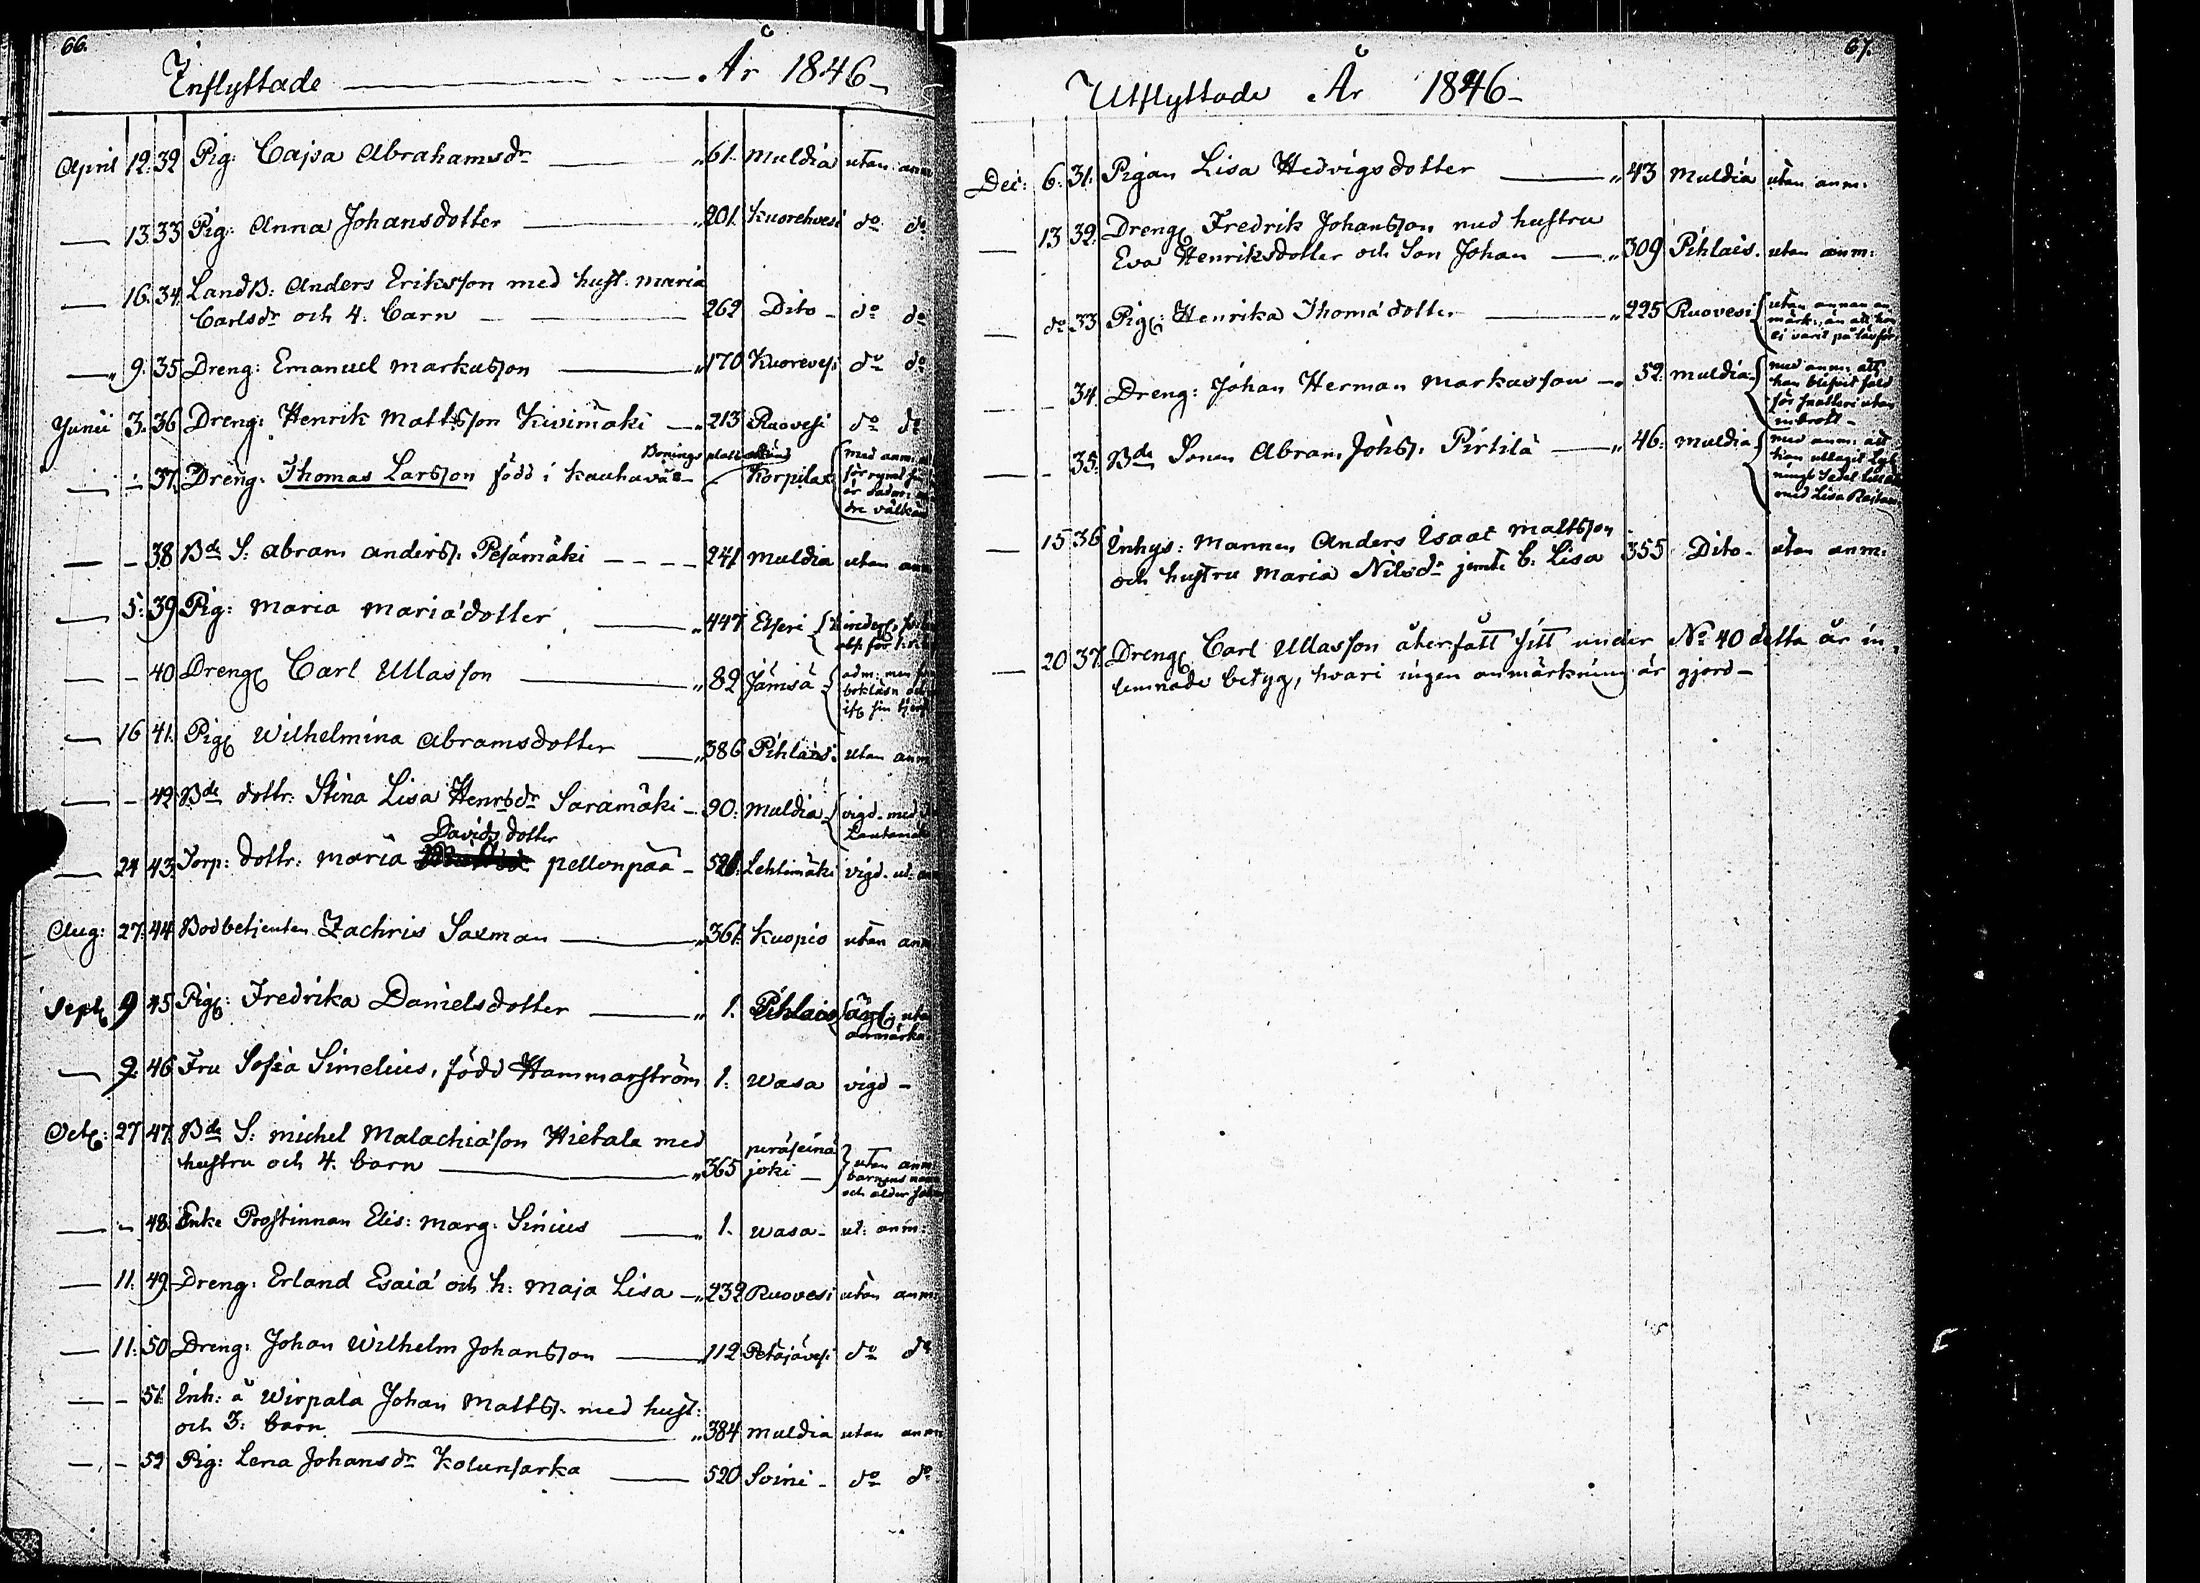 66.
Inflyttade — År 1846
April 12. 32 Pig: Cajsa Abrahamsdr — " 61. Muldia utan anm
— 13. 33 Pig: Anna Johansdotter — " 201. Kuorehvesi do do
— 16. 34. LandB: Anders Eriksson med hust. Maria
Carlsdr och 4. barn — 262 Dito - do do
— " 9. 35 Dreng: Emanuel Markusson — " 170 Kuorevesi do do
Junii 3. 36 Dreng: Henrik Mattsson Kivimäki — " 213 Ruovesi do do
Bonings plats okänd
— - 37. Dreng: Thomas Larsson född i Kauhava — Korpilax med anm:
för rymd
är
— - 38 Bde S: Abram Anders. Pesämäki - - - - 241 Muldia utan anm
— 5. 39 Pig: Maria Mariädotter — " 447 Etseri
— - 40 Dreng Carl Ullasson — " 82 Jämsä adm: men
— 16 41. Pig Wilhelmina Abramsdotter — " 386 Pihlais: utan anm
— - 42 Bde dottr: Stina Lisa Henrsdr Saramäki - 90. Muldia vigd. med
Davids dotter
— 24 43. Torp: dottr: Maria pellonpää - Lehtimäki vigd. ut: anm
Aug: 27. 44 Bodbetjenten Zachris Saxman — " 361. Kuopio utan anm
Sept 9 45 Pig: Fredrika Danielsdotter — " 1. Pihlais utan
anmärkn
— 9. 46 Fru Sofia Simelius, född Hammarström 1. Wasa vigd -
Oct: 27 47. Bde S: Michel Malachiäson Hietala med
hustru och 4. barn — " 365 peräseinä
joki — utan anm
barnens namn
och ålder
— - 48. Enke Prostinnan Elis: Marg: Sinius — " 1. Wasa - ut: anm:
— 11. 49. Dreng: Erland Esaiä och h: Maja Lisa — " 232 Ruovesi utan anm:
— 11. 50 Dreng: Johan Wilhelm Johansson — 112 Petäjävesi do do
— - 51. Inh: å Wirpala Johan Matts. med hust:
och 3. barn — " 384 Muldia utan anm
— - 52 Pig: Lena Johansdr Kolunsarka — 520 Soini - do do
67.
Utflyttade År 1846 -
Dec: 6. 31. Pigan Lisa Hedvigsdotter — " 43 Muldia utan anm:
— 13 32. Dreng Fredrik Johansson med hustru
Eva Henriksdotter och Son Johan — " 309 Pihlais. utan anm:
— do 33 Pig: Henrika Thomädotter — " 225 Ruovesi utan annan an
märk: än att hon
ej varit på läsför
— - 34. Dreng: Johan Herman Markusson — " 52. Muldia med anm: att
han blifvit fäld
för snatteri utan
inbrott -
— - 35. Bde Sonen Abram Johs. Pirtilä — " 46. Muldia med anm: att
han uttagit Lys
nings Sedel
med Lisa
— 15 36 Inhys: Mannen Anders Isaac Mattsson
och hustru Maria Nilsdr jemte b. Lisa 355 Dito - utan anm:
— 20 37. Dreng Carl Ullasson återfått sitt under No 40 detta år in
lemnade betyg, hvari ingen anmärkning är gjord -